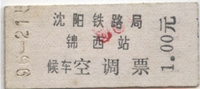 沈阳铁路局
锦西站
候车空调票
1.00元